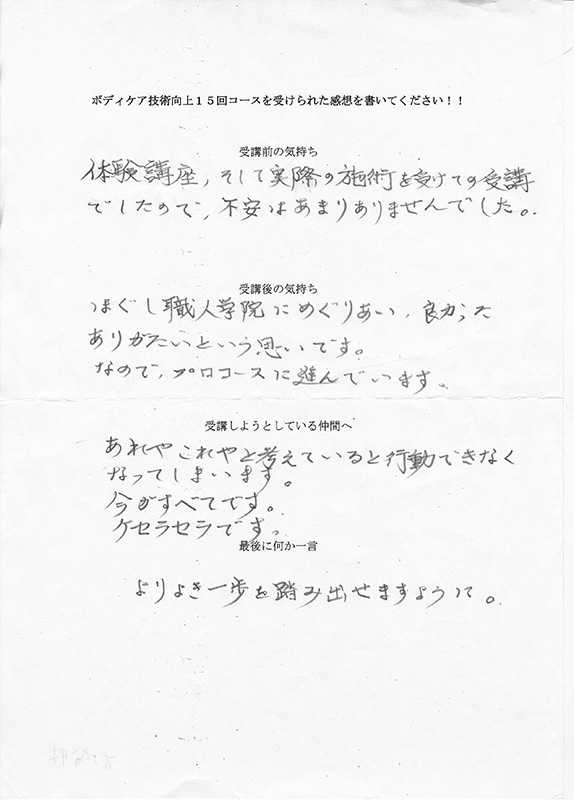 ボディケア技術向上１５回コースを受けられた感想を書いてください！！
受講前の気持ち
体験講座，そして実際の施術を受けての受講
でしたので，不安はあまりありませんでした。
受講後の気持ち
ほぐし職人学院にめぐりあい，良かった
ありがたいという思いです。
なので，プロコースに進んでいます。
受講しようとしている仲間へ
あれやこれやと考えていると行動できなく
なってしまいます。
今がすべてです。
ケセラセラです。
最後に何か一言
よりよき一歩を踏み出せますように。